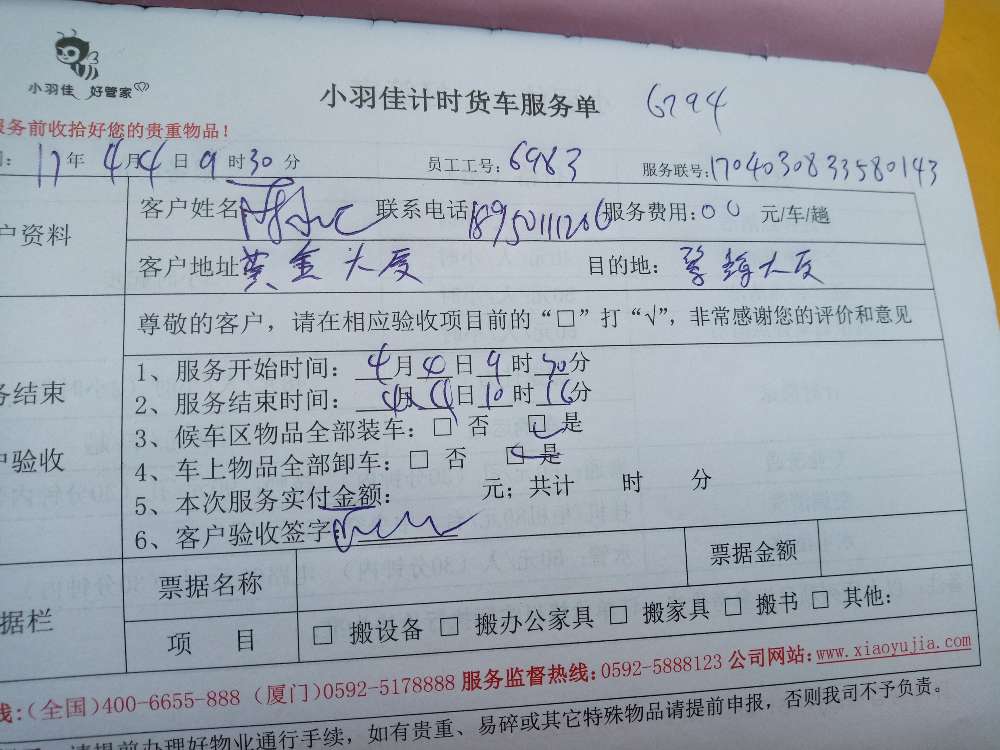 小羽佳 好管家
小羽佳计时货车服务单 6794
服务前收拾好您的贵重物品!
17年4月4日9时30分 员工工号:6963 服务联号:1704030833580143
客户姓名 联系电话18950111206 服务费用:00 元/车/趟
户资料
客户地址黄金大厦 目的地: 大厦
尊敬的客户，请在相应验收项目前的“□”打“√”，非常感谢您的评价和意见
1、服务开始时间: 4月4日9时30分
务结束
2、服务结束时间: 4月4日10时16分
3、候车区物品全部装车:□ 否 □是
户验收
4、车上物品全部卸车:□ 否 □是
5、本次服务实付金额: 元；共计 时 分
6、客户验收签字:
票据名称 票据金额
据栏
项 目 □ 搬设备 □ 搬办公家具 □ 搬家具 □ 搬书 □ 其他:
线:(全国)400-6655-888 (厦门)0592-5178888 服务监督热线:0592-5888123 公司网站:www.xiaoyujia.com
请提前办理好物业通行手续，如有贵重、易碎或其它特殊物品请提前申报，否则我司不予负责。